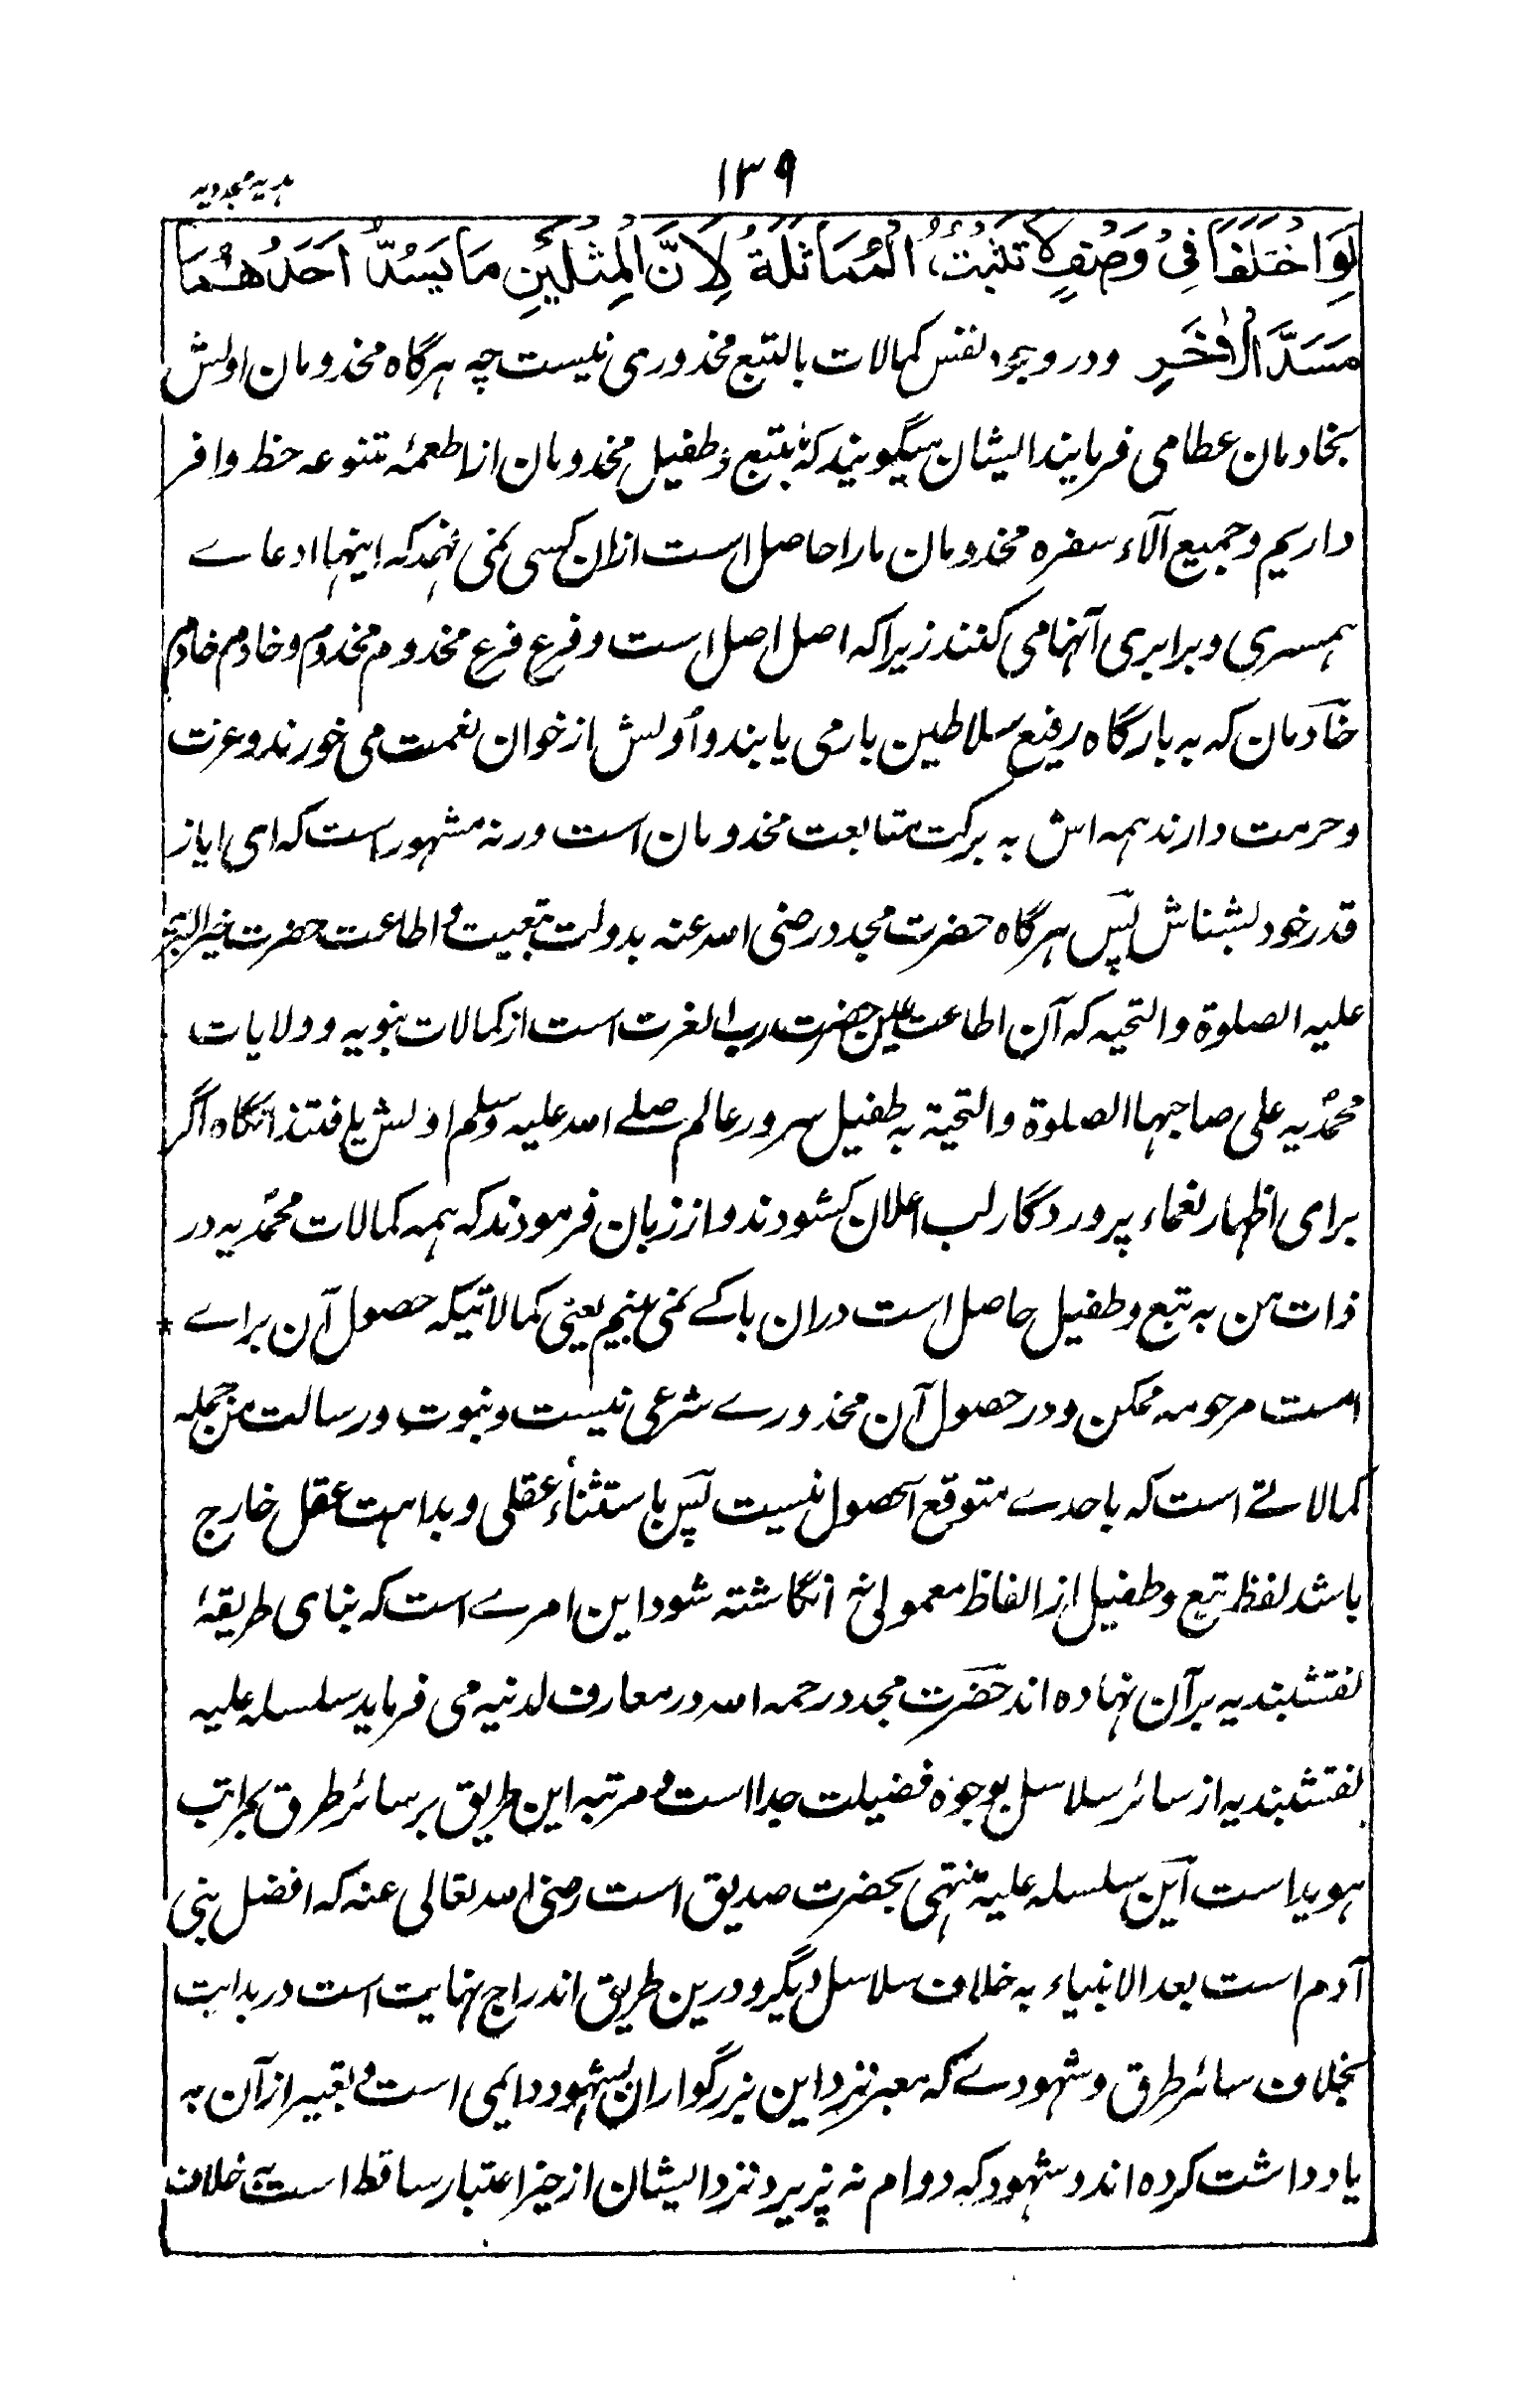 ہدیہ مجددیہ
۱۳۹
لَوِ اخْتَلَفَا فِیْ وَصْفٍ لَا تَثْبُتُ الْمُمَاثَلَةُ لِاَنَّ الْمِثْلَیْنِ مَا یَسُدُّ اَحَدُهُمَا
مَسَدَّ الْاٰخَرِ ودر وجود نفس کمالات بالتبع مخذوری نیست چه هرگاه مخدومان اولش
بخادمان عطا می فرمایند ایشان میگویند که بتبع وطفیل مخدومان از اطعمهٔ متنوعه حظ وافر
داریم وجمیع آلاء سفره مخدومان مارا حاصل است ازان کسی نمی فهمد که اینها ادعاے
همسری وبرابری آنها می کنند زیرا که اصل اصل است وفرع فرع مخدوم مخدوم وخادم خادم
خادمان که به بارگاه رفیع سلاطین بار می یابند و اولش از خوان نعمت می خورند وعزت
وحرمت دارند همه اش به برکت متابعت مخدومان است ورنه مشهور است که ای ایاز
قدر خود بشناش پس هرگاه حضرت مجدد رضی الله عنه بدولت تبعیت و اطاعت حضرت خیر البشر
علیه الصلوة والتحیه که آن اطاعت عین حضرت رب العزت است از کمالات نبویه وولایات
محمدیه علی صاحبها الصلوة والتحیة به طفیل سرور عالم صلے الله علیه وسلم اولش یافتند آنگاه اگر
برای اظهار نعماء پروردگار لب اعلان کشودند واز زبان فرمودند که همه کمالات محمدیه در
ذات من به تبع وطفیل حاصل است دران باکے نمی بینم یعنی کمالاتیکه حصول آن براے
امت مرحومه ممکن ودر حصول آن مخذورے شرعی نیست ونبوت ورسالت من جمله
کمالاتے است که باحدے متوقع الحصول نیست پس باستثناء عقلی وبداهت عقل خارج
باشد لفظ تبع وطفیل از الفاظ معمولی نه انگاشته شود این امرے است که بنای طریقهٔ
نقشبندیه برآن نهاده اند حضرت مجدد رحمه الله در معارف لدنیه می فرماید سلسله علیه
نقشبندیه از سائر سلاسل بوجوه فضیلت جدا است و مرتبه این طریق بر سائر طرق بمراتب
هویدا است این سلسله علیه منتهی بحضرت صدیق است رضی الله تعالی عنه که افضل بنی
آدم است بعد الانبیاء به خلاف سلاسل دیگر ودرین طریق اندراج نهایت است در بدایت
بخلاف سائر طرق وشهودے که معبر نزد این بزرگواران شهود دایمی است و تعبیر ازآن به
یادداشت کرده اند وشهود که دوام نه پذیرد نزد ایشان از حیز اعتبار ساقط است خلاف